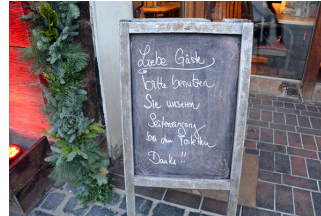 Liebe Gäste,
bitte benutzen
Sie unseren
Seiteneingang
bei den Toiletten
Danke!!